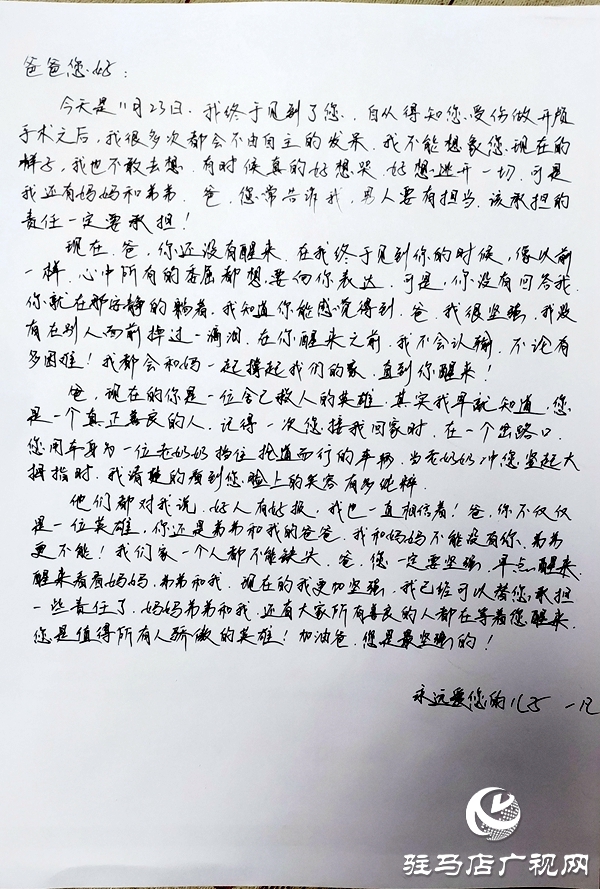 爸爸您好:
今天是11月23日,我终于见到了您,自从得知您受伤做开颅
手术之后,我很多次都会不由自主的发呆,我不能想象您现在的
样子,我也不敢去想,有时候真的好想哭,好想逃开一切,可是
我还有妈妈和弟弟,爸,您常告诉我,男人要有担当,该承担的
责任一定要承担!
现在,爸,你还没有醒来,在我终于见到你的时候,像以前
一样,心中所有的委屈都想要向你表达,可是,你没有回答我,
你就在那安静的躺着,我知道你能感觉得到,爸,我很坚强,我没
有在别人面前掉过一滴泪,在你醒来之前,我不会认输,不论有
多困难!我都会和妈一起撑起我们的家,直到你醒来!
爸,现在的你是一位舍己救人的英雄,其实我早就知道,您
是一个真正善良的人,记得一次您接我回家时,在一个岔路口,
您用车身为一位老奶奶挡住抢道而行的车辆,当老奶奶冲您竖起大
拇指时,我清楚的看到您脸上的笑容有多纯粹,
他们都对我说,好人有好报,我也一直相信着!爸,你不仅仅
是一位英雄,你还是弟弟和我的爸爸,我和妈妈不能没有你,弟弟
更不能!我们家一个人都不能缺失,爸,您一定要坚强,早点醒来,
醒来看看妈妈,弟弟和我,现在的我更加坚强,我已经可以替您承担
一些责任了,妈妈弟弟和我,还有大家所有善良的人都在等着您醒来,
您是值得所有人骄傲的英雄!加油爸,您是最坚强的!
永远爱您的儿子 一凡
驻马店广视网